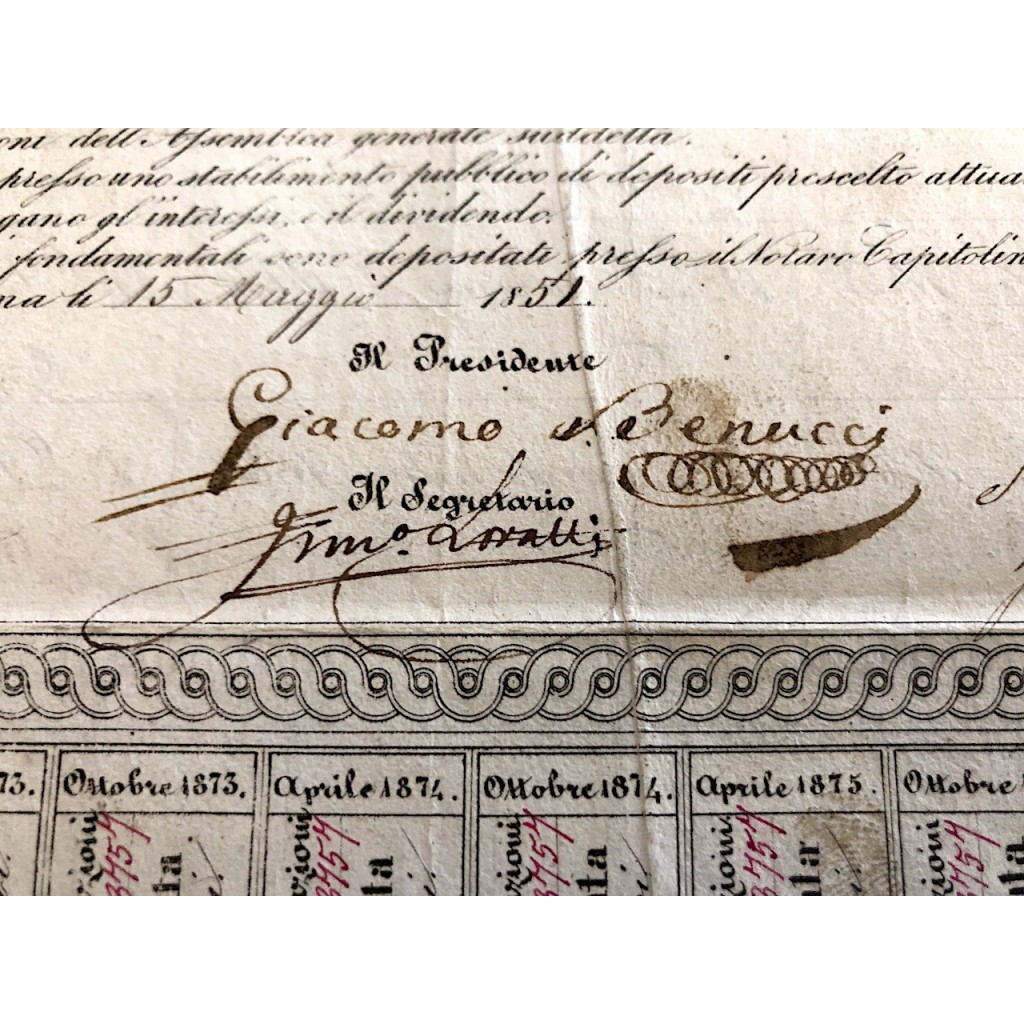 dell'Assemblea generale suddetta.
presso uno stabilimento pubblico di depositi prescelto
gl'interessi, e il dividendo.
fondamentali sono depositati presso il Notaro Capitolin
li 15 Maggio 1851.
Il Presidente
Giacomo Benucci
Il Segretario
73. Ottobre 1873. Aprile 1874. Ottobre 1874. Aprile 1875. Ottobre 1
zioni zioni zioni zioni zioni
3757 3757 3757 3757 3757
ta ta ta ta ta